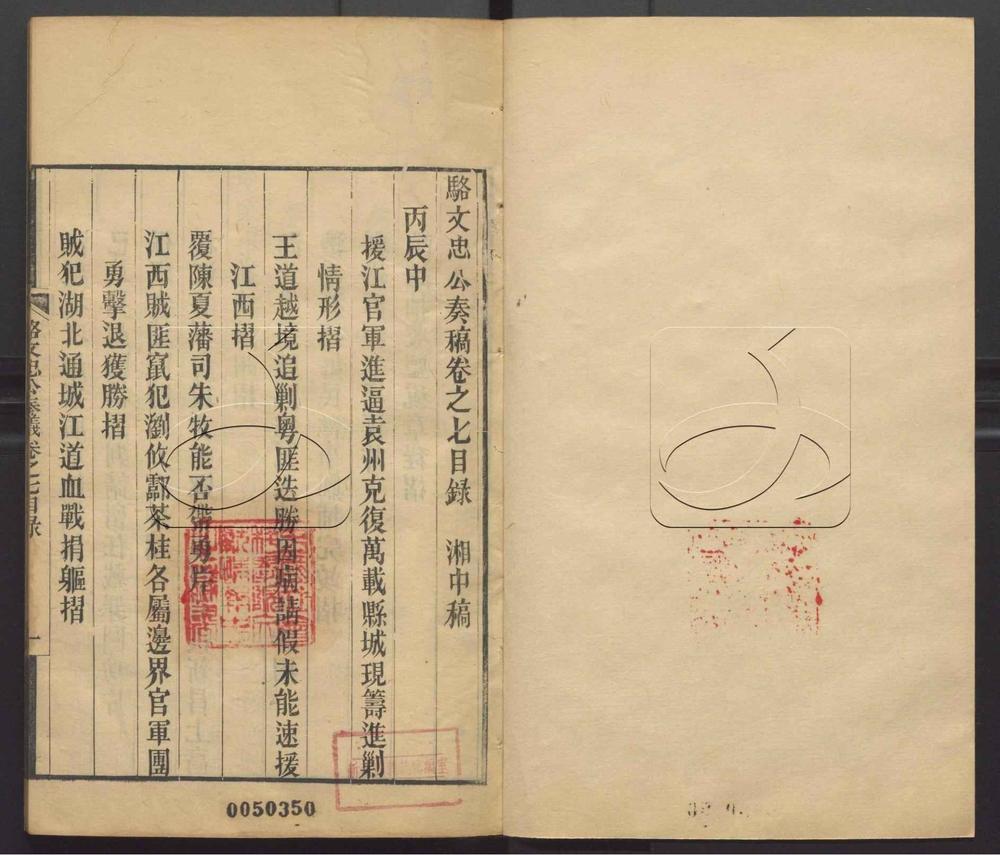 駱文忠公奏稿卷之七目錄　湘中稿
丙辰中
援江官軍進逼袁州克復萬載縣城現籌進剿
情形摺
王道越境追剿粵匪迭勝因病請假未能速援
江西摺
覆陳夏藩司朱牧能否帶勇片
江西賊匪竄犯瀏攸酃茶桂各屬邊界官軍團
勇擊退獲勝摺
賊犯湖北通城江道血戰捐軀摺
駱文忠公奏議卷之七目錄
一
0050350